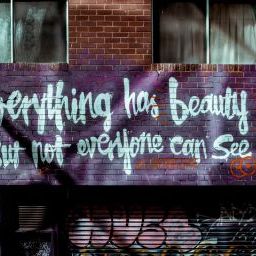 verything has beauty
but not everyone can See